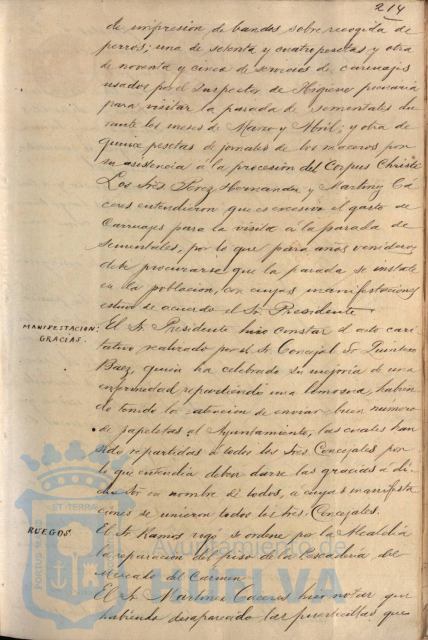 214
de impresion de bandos sobre recogida de
perros; una de setenta y cuatro pesetas y otra
de noventa y cinco de servicios de carruajes
usados por el Inspector de Higiene pecuaria
para visitar la parada de sementales du
rante los meses de Marzo y Abril; y otra de
quince pesetas de jornales de los maceros por
su asistencia á la procesion del Corpus Christi
Los Sres Perez Hernandez y Martinez Ca
ceres entendieron que es excesivo el gasto de
Carruajes para la visita á la parada de
Sementales, por lo que para años venideros
debe procurarse que la parada se instale
en la poblacion, con cuyas manifestaciones
estuvo de acuerdo el Sr. Presidente
MANIFESTACION:
GRACIAS.
El Sr. Presidente hizo constar el acto cari
tativo realizado por el Sr. Concejal Sr Quintero
Baez, quien ha celebrado su mejoria de una
enfermedad repartiendo una limosna, habien
do tenido la atencion de enviar buen numero
de papeletas al Ayuntamiento, las cuales han
sido repartidas a todos los Sres. Concejales por
lo que entendia deben darse las gracias á di
cho Sr. en nombre de todos, a cuyas manifesta
ciones se unieron todos los Sres. Concejales.
RUEGOS
El Sr. Ramos rogó se ordene por la Alcaldia
la reparacion del piso de la pescaderia del
Mercado del Carmen
El Sr. Martinez Caceres hizo notar que
habiendo desaparecido las puertecillas que
ET TERRA
PORTUS
Ayuntamiento de
HUELVA